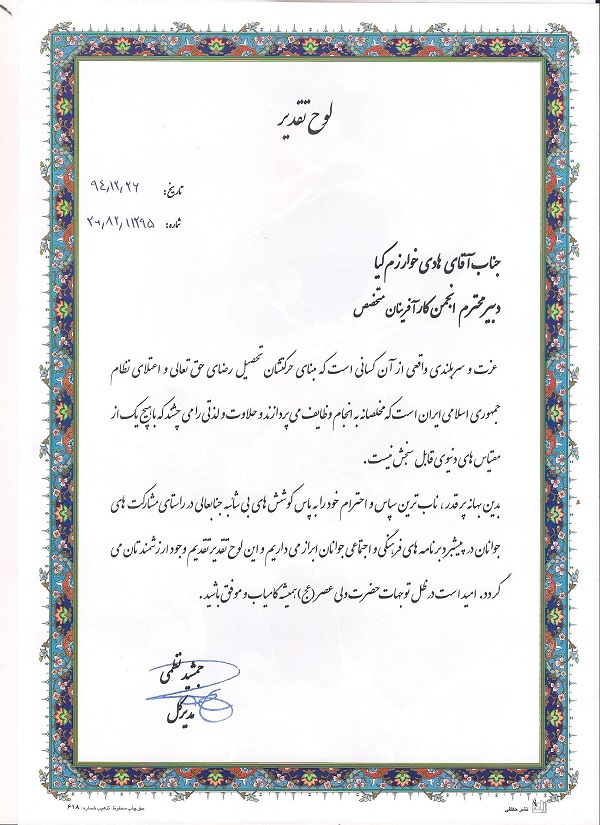 لوح تقدیر
تاریخ: ۹۴/۱۲/۲۶
شماره: ۲۰/۸۲/۱۱۳۹۵
جناب آقای هادی خوارزم کیا
دبیر محترم انجمن کارآفرینان متخصص
عزت و سربلندی واقعی از آن کسانی است که مبنای حرکتشان تحصیل رضای حق تعالی و اعتلای نظام
جمهوری اسلامی ایران است که مخلصانه به انجام وظایف می پردازند و حلاوت و لذتی را می چشند که با هیچ یک از
مقیاس های دنیوی قابل سنجش نیست.
بدین بهانه پر قدر، ناب ترین سپاس و احترام خود را به پاس کوشش های بی شائبه جنابعالی در راستای مشارکت های
جوانان در پیشبرد برنامه های فرهنگی و اجتماعی جوانان ابراز می داریم و این لوح تقدیر تقدیم وجود ارزشمندتان می
گردد. امید است در ظل توجهات حضرت ولی عصر (عج) همیشه کامیاب و موفق باشید.
جمشید نظمی
مدیرکل
نشر حفظی
حق چاپ محفوظ. تذهیب شماره: ۶۱۸